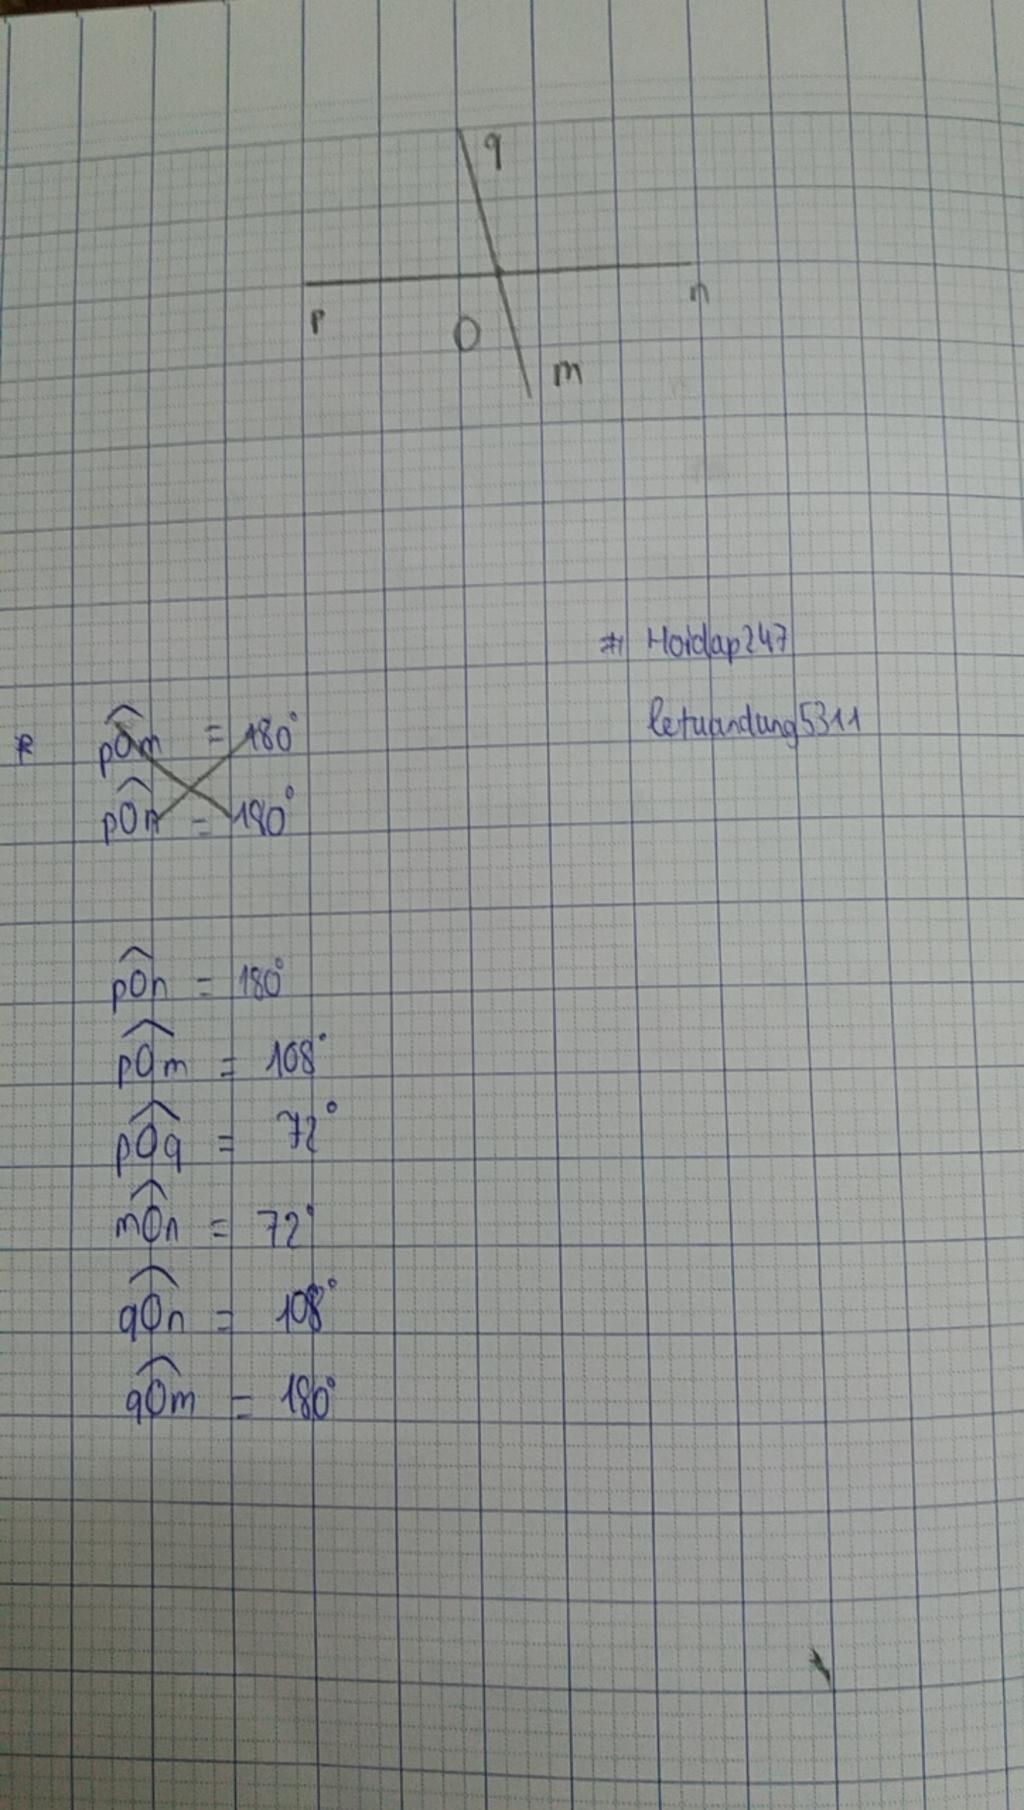 q
p
n
O
m
# Hoidap247
letuandung5311
* pÔm = 180°
pÔn = 180°
pÔn = 180°
pÔm = 108°
pÔq = 72°
mÔn = 72°
qÔn = 108°
qÔm = 180°